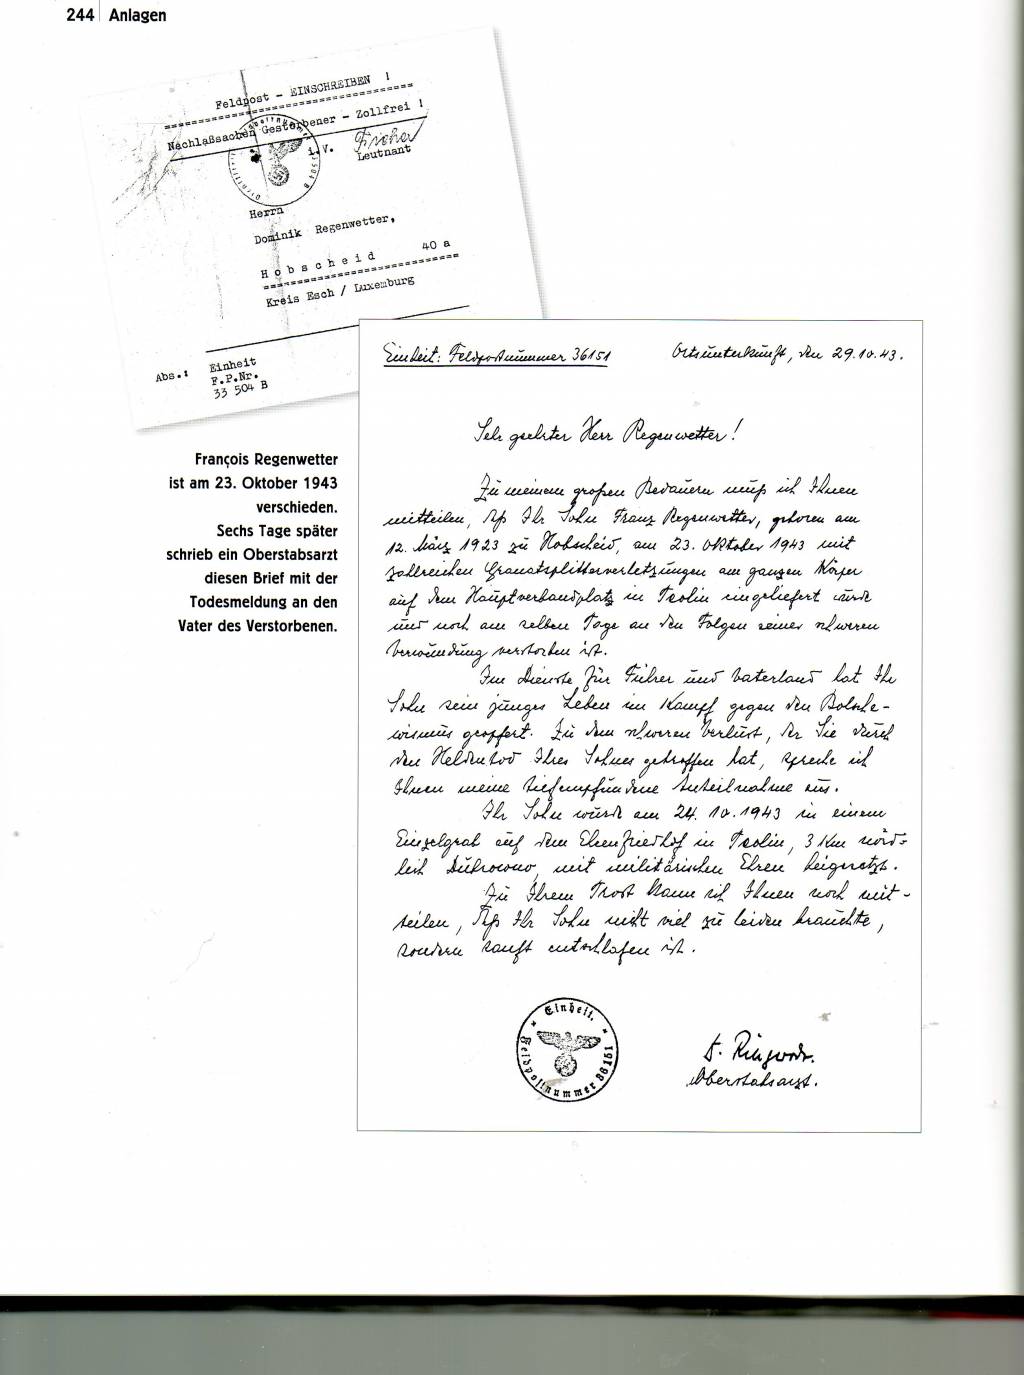 244 Anlagen
Feldpost - EINSCHREIBEN !
Nachlaßsachen Gestorbener - Zollfrei !
i.V. Fischer
Leutnant
Herrn
Dominik Regenwetter,
Hobscheid 40 a
Kreis Esch / Luxemburg
Abs.: Einheit
F.P.Nr.
33 504 B
François Regenwetter
ist am 23. Oktober 1943
verschieden.
Sechs Tage später
schrieb ein Oberstabsarzt
diesen Brief mit der
Todesmeldung an den
Vater des Verstorbenen.
Einheit: Feldpostnummer 36151
Ortsunterkunft, den 29.10.43.
Sehr geehrter Herr Regenwetter!
Zu meinem großen Bedauern muß ich Ihnen
mitteilen, daß Ihr Sohn Franz Regenwetter, geboren am
12. März 1923 zu Hobscheid, am 23. Oktober 1943 mit
zahlreichen Granatsplitterverletzungen am ganzen Körper
auf dem Hauptverbandplatz in Teolin eingeliefert wurde
und noch am selben Tage an den Folgen seiner schweren
Verwundung verstorben ist.
Im Dienste für Führer und Vaterland hat Ihr
Sohn sein junges Leben im Kampf gegen den Bolsche-
wismus geopfert. Zu dem schweren Verlust, der Sie durch
den Heldentod Ihres Sohnes getroffen hat, spreche ich
Ihnen meine tiefempfundene Anteilnahme aus.
Ihr Sohn wurde am 24.10.1943 in einem
Einzelgrab auf dem Ehrenfriedhof in Teolin, 3 km nörd-
lich Dubrowno, mit militärischen Ehren beigesetzt.
Zu Ihrem Trost kann ich Ihnen noch mit-
teilen, daß Ihr Sohn nicht viel zu leiden brauchte,
sondern sanft entschlafen ist.
Einheit.
Feldpostnummer 36151
Oberstabsarzt.